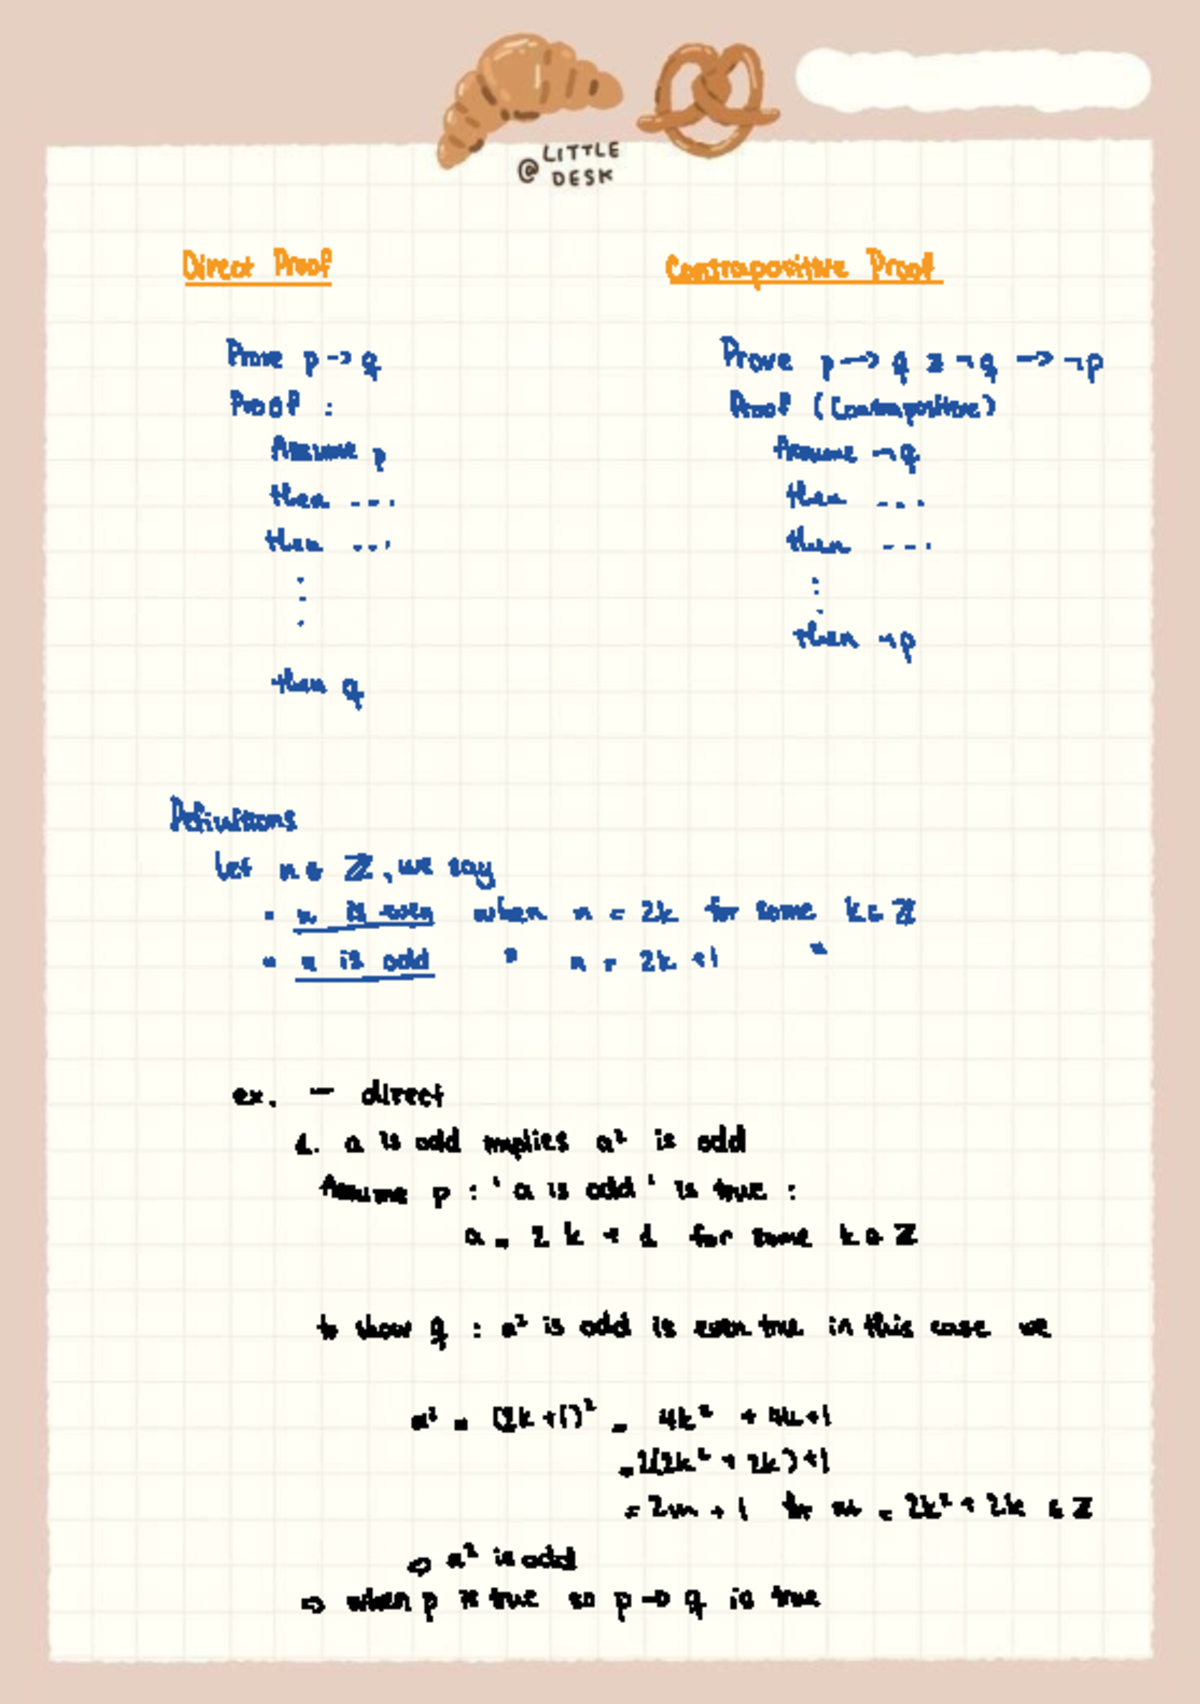 @ LITTLE
DESK
Direct Proof
Prove p → q
Proof :
Assume p
then ...
then ...
⋮
then q
Contrapositive Proof
Prove p → q ≡ ¬q → ¬p
Proof (Contrapositive)
Assume ¬q
then ...
then ...
⋮
then ¬p
Definitions
Let n ∈ ℤ, we say
• n is even when n = 2k for some k ∈ ℤ
• n is odd " n = 2k +1 "
ex. — direct
1. a is odd implies a² is odd
Assume p : ' a is odd ' is true :
a = 2k + 1 for some k ∈ ℤ
to show q : a² is odd is even true in this case we
a² = (2k+1)² = 4k² + 4k+1
= 2(2k² + 2k) +1
= 2m + 1 for m = 2k² + 2k ∈ ℤ
⇒ a² is odd
⇒ when p is true so p → q is true